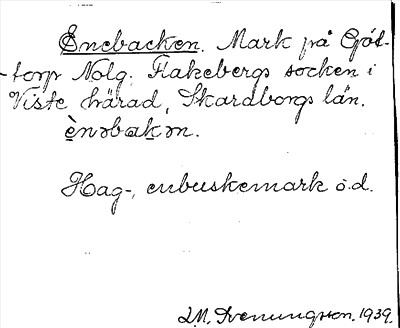 Enebacken. Mark på Göt-
-torp Nolg. Flakebergs socken i
Viste härad, Skardborgs län.
ènəbakən.
Hag-, enbuskemark o.d.
I.M. Svenungsson. 1939.